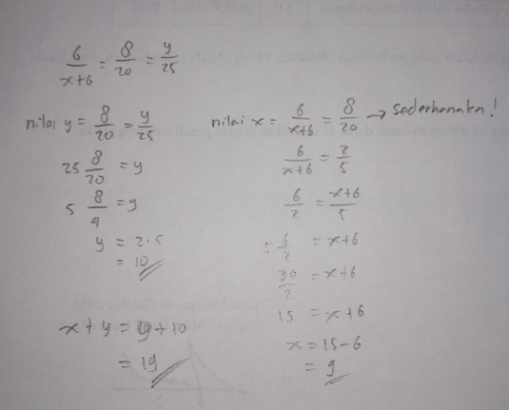 6/(x+6) = 8/20 = y/25
nilai y = 8/20 = y/25
25 8/20 = y
5 8/4 = y
y = 2.5
= 10
nilai x = 6/(x+6) = 8/20 → sederhanaka!
6/(x+6) = 2/5
6/2 = (x+6)/5
6/2 = x+6
30/2 = x+6
15 = x+6
x = 15-6
= 9
x + y = 9 + 10
= 19